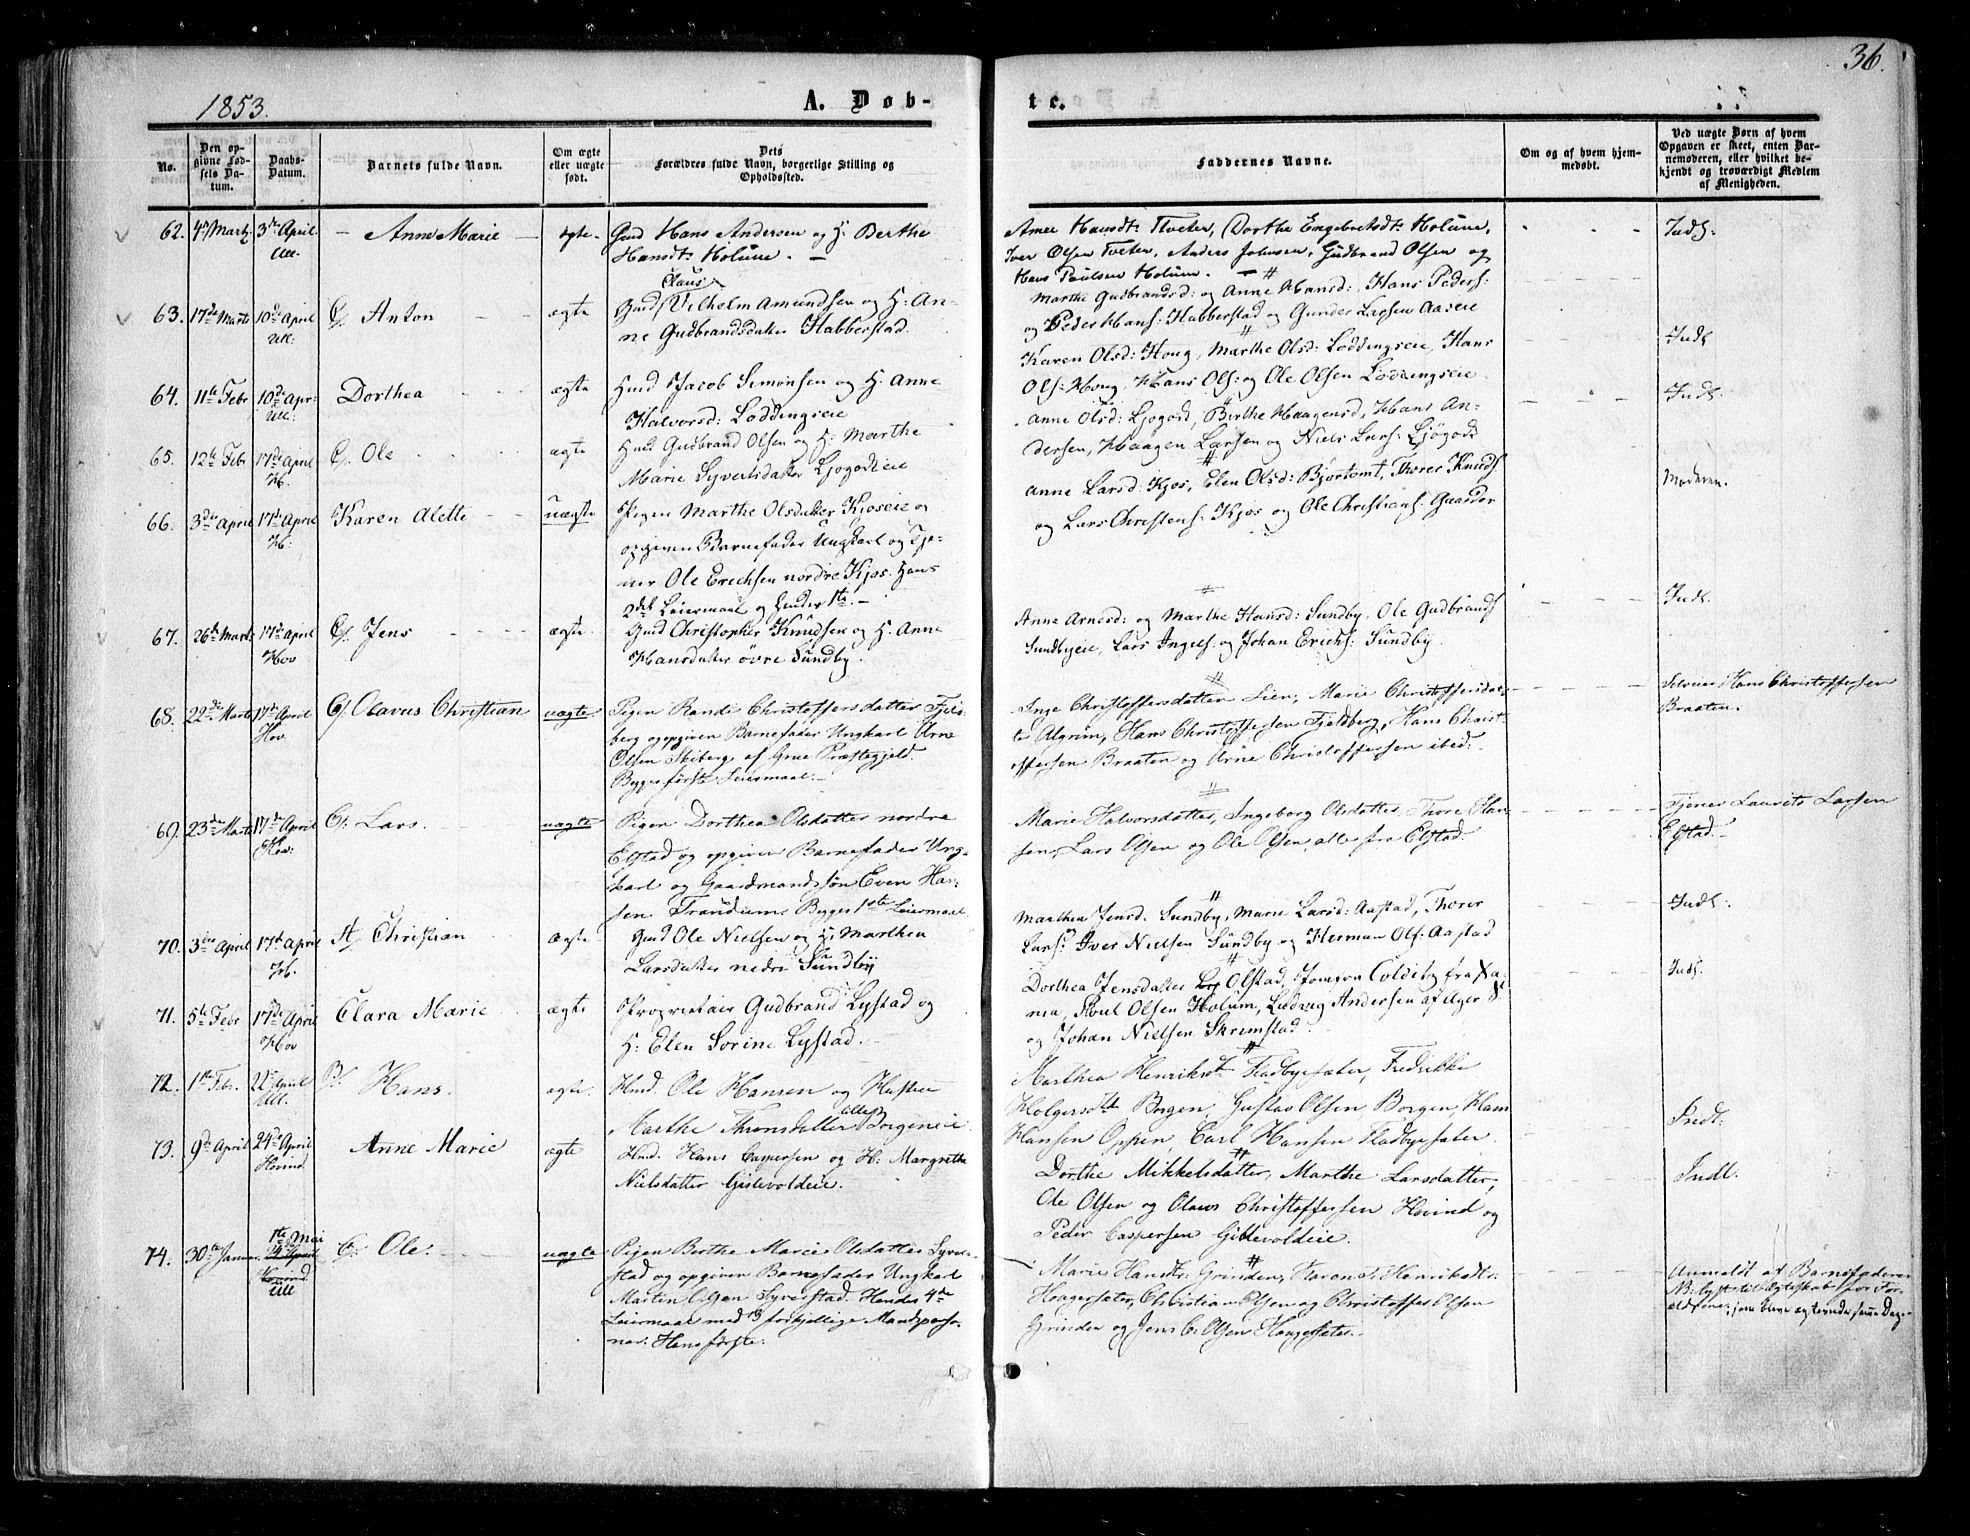 36.
1853.
A. Døb-
te.
No.
Den op-
givne Fød-
sels Da-
tum.
Daabs-
Datum.
Barnets fulde Navn.
Om ægte
eller uægte
født.
Dets
Forældres fulde Navn, borgerlige Stilling og
Opholdssted.
Faddernes Navne.
Om og af hvem hjem-
medøbt.
Ved uægte Børn af hvem
Opgaven er skeet, enten Bar-
nemoderen, eller hvilket be-
kjendt og troværdigt Medlem
af Menigheden.
62. 4de Marts 3die April Ull. Anne Marie ægte
Hans Andersen og H. Berthe
Hansdt: Holum.
Hansdt: Tveter, Dorthe Engebretsdt: Holum,
Iver Olsen Tveter, Anders Johnsen, Gudbrand Olsen og
Hans Paulsen Holum.
Indl:
63. 17de Marts 10de April Ull: Anton ægte
Claus
Vilhelm Amundsen og H: An-
ne Gudbrandsdatter Habberstad.
Marthe Gudbrandsd: og Anne Hansd: Hans Peders:
og Peder Hans: Habberstad og Gunder Larsen Aaseie
Indl
64. 11te Febr 10de Apr: Ull: Dorthea ægte
Jacob Simonsen og H. Anne
Halvorsd: Loddingseie
Karen Olsd: Houg, Marthe Olsd: Loddingseie, Hans
Ols: Houg, Hans Ols: og Ole Olsen Loddingseie
Indl.
65. 12te Febr 17de April H. Ole ægte
Gudbrand Olsen og H: Marthe
Marie Syvertsdatter Ljøgodseie
Anne Olsd: Ljøgod, Berthe Haagensd, Hans An-
dersen, Haagen Larsen og Niels Lars: Ljøgod:
66. 3die April 17de April H: Karen Alette uægte
Pigen Marthe Olsdatter Kjoseie og
opgiven Barnefader Ungkarl og Tje-
ner Ole Erichsen nordre Kjos. Hans
2det Leiermaal og hendes 1te.
Anne Larsd: Kjos, Elen Olsd: Bjørtomt, Thorer Knuds
og Lars Christens: Kjos og Ole Christians: Gaarder
Moderen.
67. 26de Marts 17de April Hov Jens ægte.
Christopher Knudsen og H. Anne
Hansdatter øvre Sundby.
Anne Arnesd: og Marthe Hansd: Sundby, Ole Gudbrands
Sundbyeie, Lars Ingels: og Johan Erichs: Sundby.
Indl.
68. 22de Marts 17de April Hov Olavus Christian uægte
Pigen Rande Christoffersdatter Fjeld-
berg og opgiven Barnefader Ungkarl Arne
Olsen Skiberg af Grue Præstegjeld.
Begges første Leiermaal.
Inge Christoffersdatter Lien, Marie Christoffersdat-
ter Algrim, Hans Christoffersen Fjeldberg, Hans Christ-
offersen Braaten og Arne Christoffersen ibid:
Hans Christoffersen
Braaten.
69. 23de Marts 17de April Hov: Lars. uægte
Pigen Dorthea Olsdatter nordre
Elstad og opgiven Barnefader Ung-
karl og Gaardmandssøn Even Han-
sen Trandum Begges 1ste Leiermaal
Marie Halvorsdatter, Ingeborg Olsdatter, Thore Han-
sen, Lars Olsen og Ole Olsen, alle fra Elstad.
Tjener Laurits Larsen
Elstad.
70. 3die April 17de April H. Christian ægte
Ole Nielsen og H. Marthea
Larsdatter nedre Sundby
Marthea Jensd. Sundby, Marie Larsd: Aastad, Thorer
Lars: Iver Nielsen Sundby og Herman Ols: Aastad
Indl:
71. 5te Febr 17de April Hov Clara Marie ægte
Proprietair Gudbrand Lystad og
H: Elen Sorine Lystad.
Dorthea Jensdatter Olstad, Jomfru Colditz fra Na-
Poul Olsen Holum, Ludvig Andersen af
og Johan Nielsen Skrimstad.
Indl.
72. 1te Febr. 22de April Ull. Hans. ægte.
Hmd. Ole Hansen og Hustru
Marthe Thronsdatter lille Borgeneie
Marthea Henriksdt Fladbyesæter, Fredrikke
Holgersdt Borgen, Gustav Olsen Borgen, Hans
Hansen Oppen, Carl Hansen Fladbyesæter.
Indl.
73. 9de April 24de April Hovind Anne Marie ægte
Hmd. Hans Caspersen og H: Margrethe
Nielsdatter Gislevoldeie.
Dorthe Mikkelsdatter, Marthe Larsdatter,
Ole Olsen og Olaus Christoffersen Hovind og
Peder Caspersen Gislevoldeie.
Indl.
74. 30te Januar 1te Mai Ull Ole. uægte
Pigen Berthe Marie Olsdatter Syver-
stad og opgiven Barnefader Ungkarl
Martin Olsen Syverstad. Hendes 4de
Leiermaal med 3 forskjellige Mandsperso-
ner. Hans første.
Marie Hansdt: Grinden, Karen Henriksdt:
Haagesæter, Christian Olsen og Christoffer Olsen
Grinden og Jens C. Olsen Haagesæter.
Anmeldt af Barnefaderen